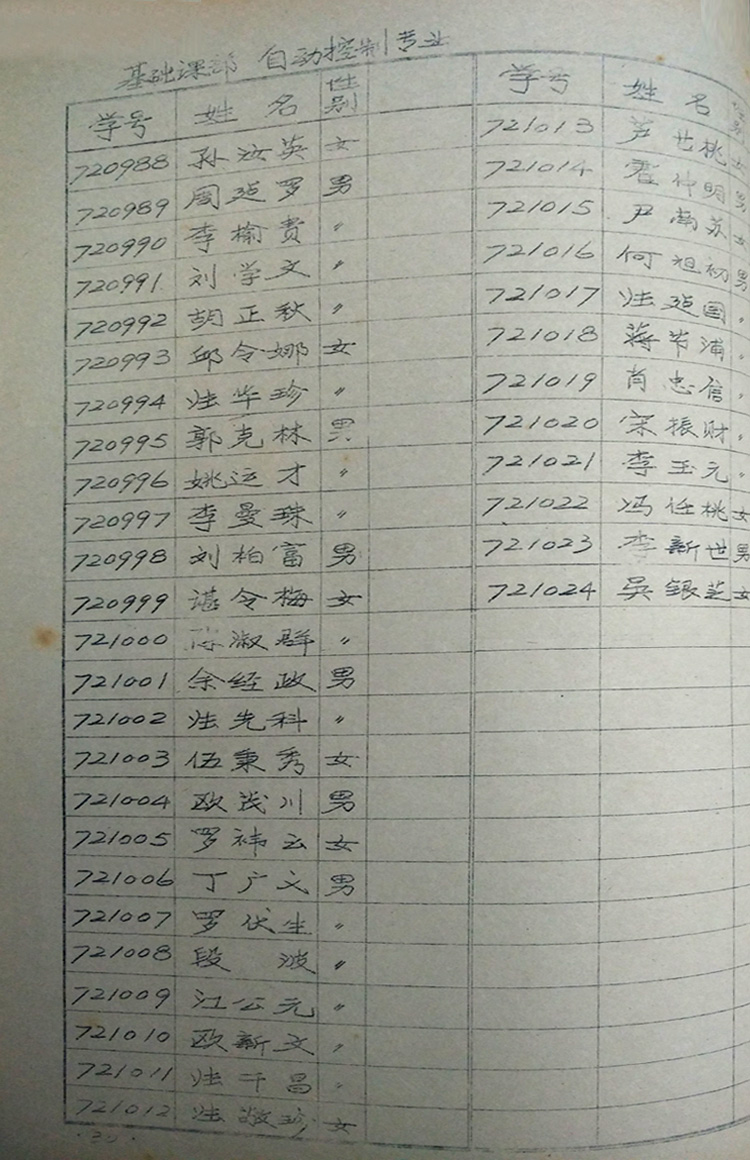 基础课部 自动控制专业
学号 姓名 性别
720988 孙汝英 女
720989 周廷罗 男
720990 李榆贵 〃
720991 刘学文 〃
720992 胡正秋 〃
720993 邱令娜 女
720994 华珍 〃
720995 郭克林 男
720996 姚运才 〃
720997 李曼珠 〃
720998 刘柏富 男
720999 谌令梅 女
721000 陈淑群 〃
721001 余经政 男
721002 先科 〃
721003 伍秉秀 女
721004 欧茂川 男
721005 罗祎云 女
721006 丁广文 男
721007 罗伏生 〃
721008 段波 〃
721009 江公元 〃
721010 欧新文 〃
721011 千昌 〃
721012 女
学号 姓名
721013 芦世桃 女
721014 仲明 男
721015 尹南苏 女
721016 何祖初 男
721017 廷国 〃
721018 蒋节浦 〃
721019 肖忠信 〃
721020 宋振财 〃
721021 李玉元 〃
721022 冯任桃 女
721023 李新世 男
721024 吴银芝 女